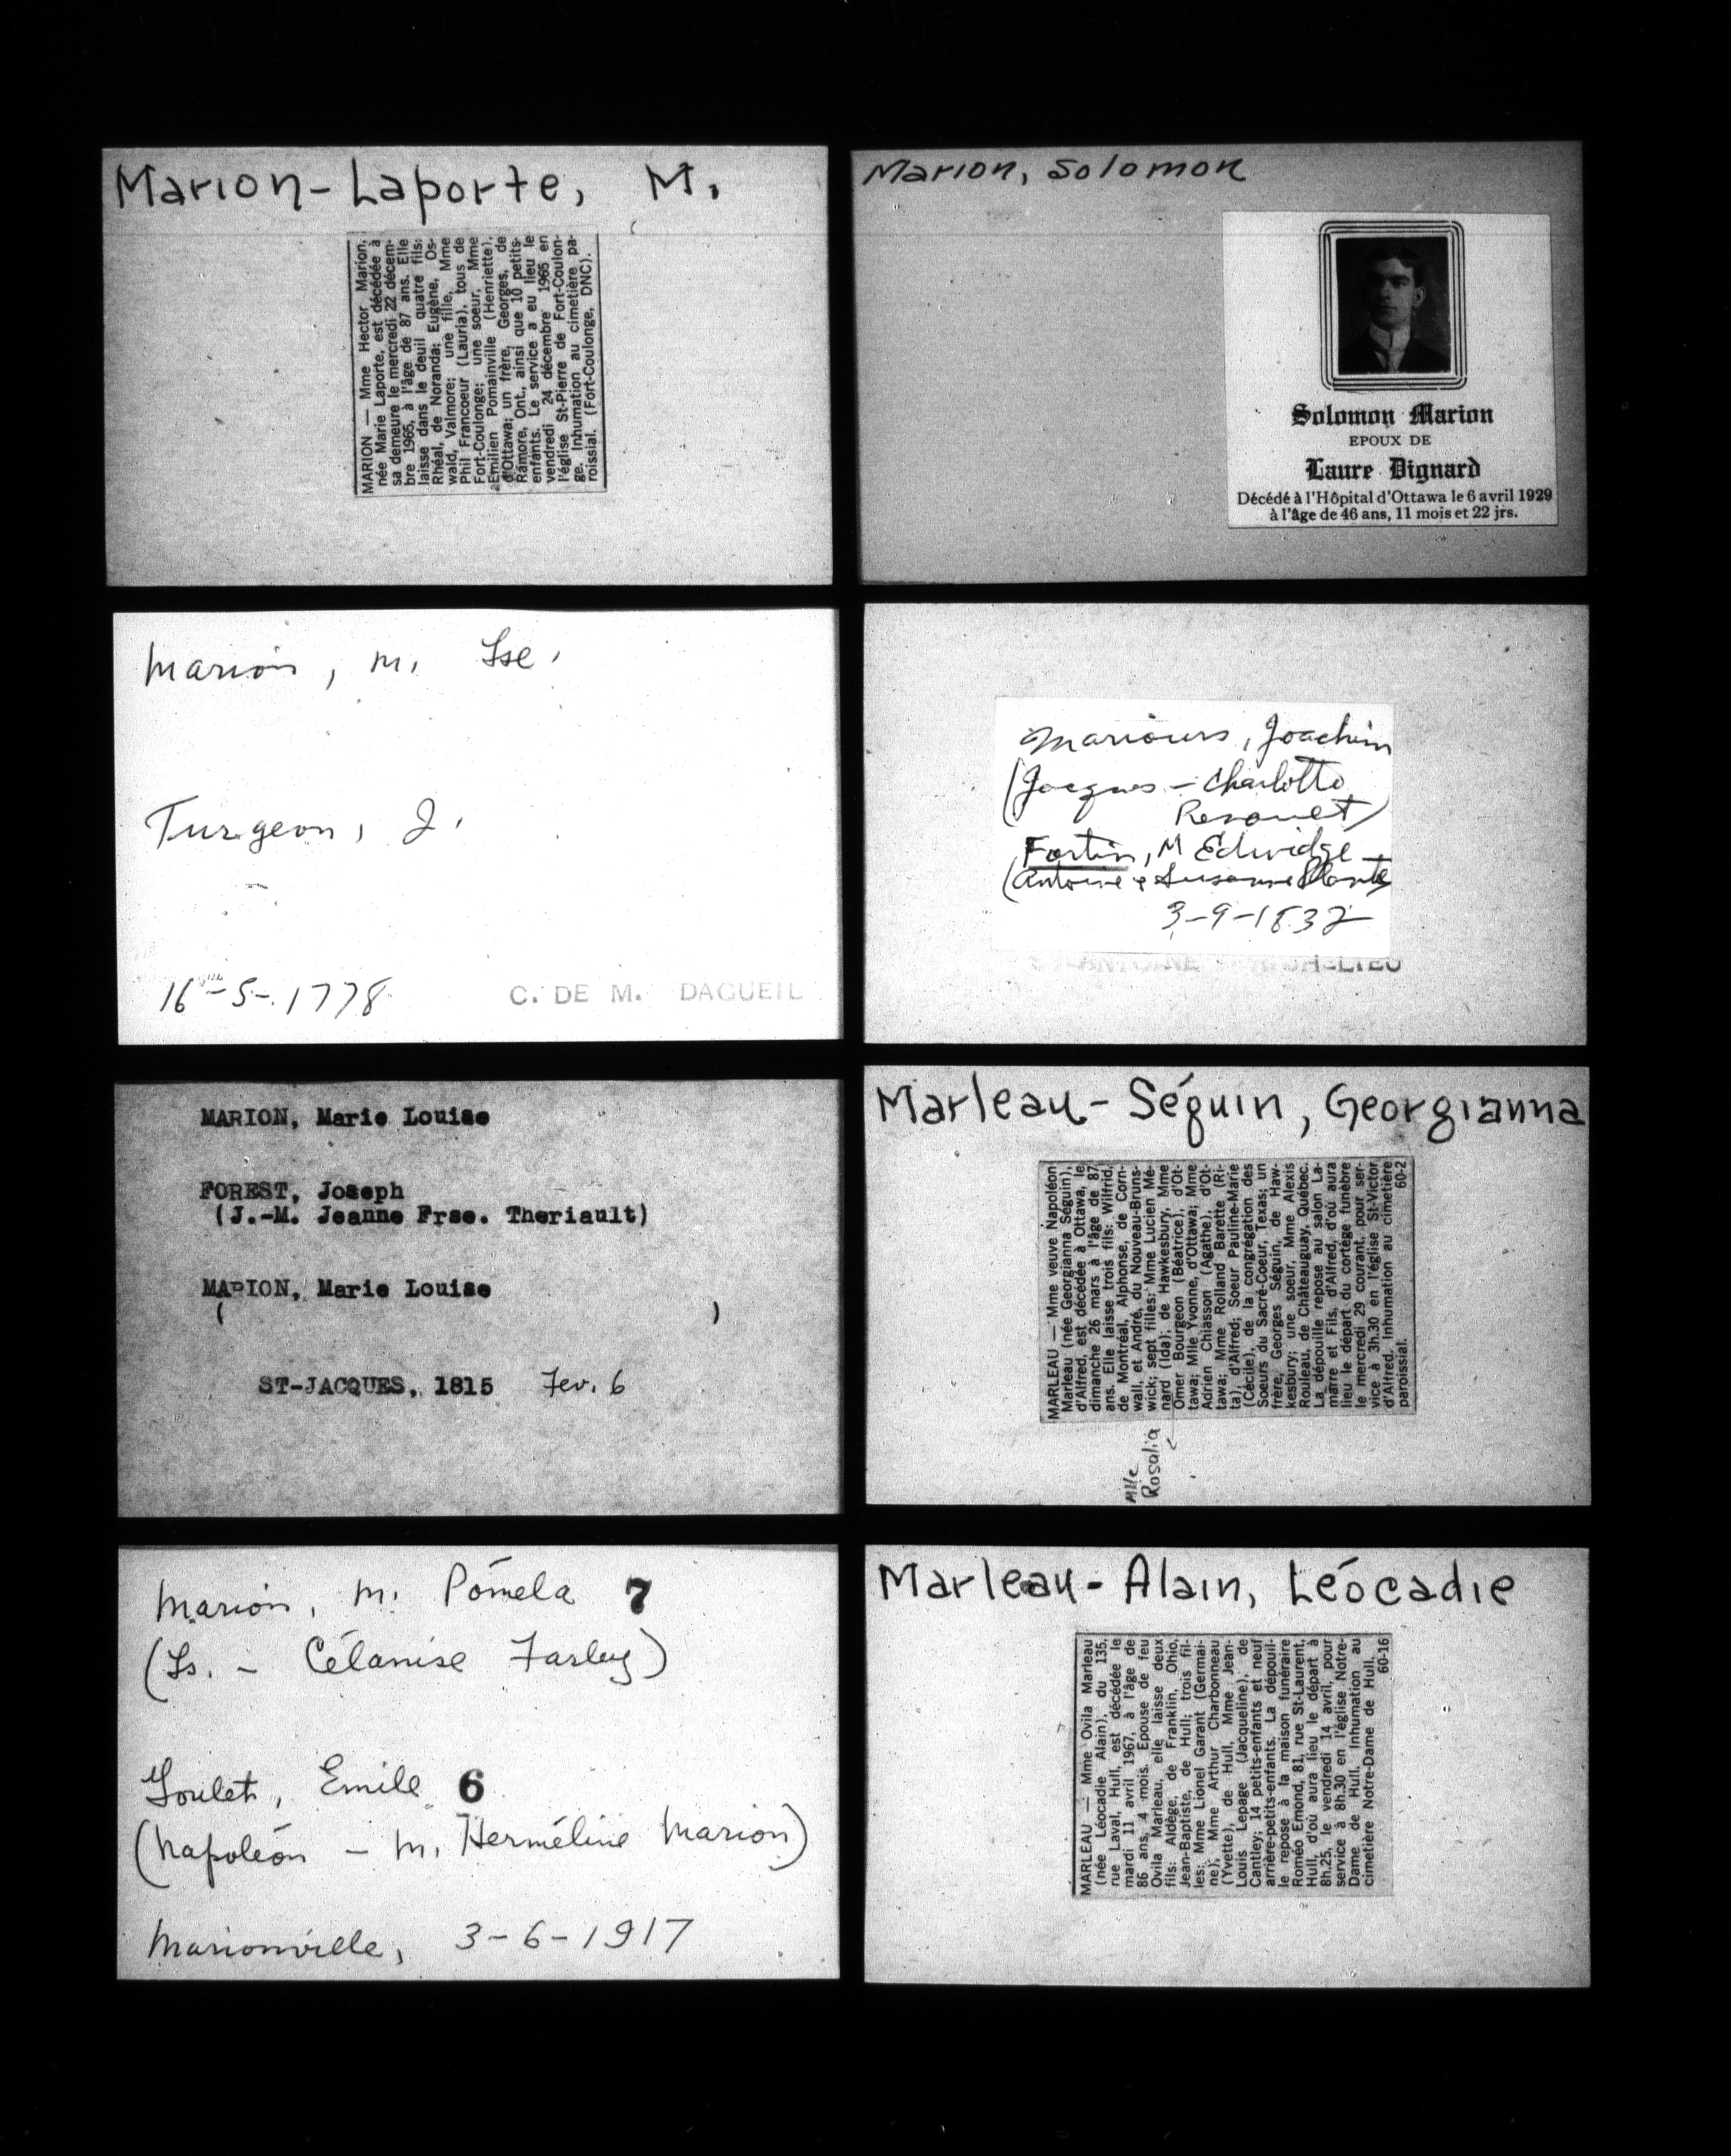 Marion-Laporte, M.
MARION — Mme Hector Marion,
née Marie Laporte, est décédée à
sa demeure le mercredi 22 décem-
bre 1965, à l'âge de 87 ans. Elle
laisse dans le deuil quatre fils:
Rhéal, de Noranda; Eugène, Os-
wald, Valmore; une fille, Mme
Phil Francoeur (Lauria), tous de
Fort-Coulonge; une soeur, Mme
Emilien Pomainville (Henriette),
d'Ottawa; un frère, Georges, de
Ramore, Ont., ainsi que 10 petits-
enfants. Le service a eu lieu le
vendredi 24 décembre 1965 en
l'église St-Pierre de Fort-Coulon-
ge. Inhumation au cimetière pa-
roissial. (Fort-Coulonge, DNC).
Marion, Solomon
Solomon Marion
EPOUX DE
Laure Dignard
Décédé à l'Hôpital d'Ottawa le 6 avril 1929
à l'âge de 46 ans, 11 mois et 22 jrs.
Marion, m. Lse.
Turgeon, J.
16-5-1778
C. DE M. DAGUEIL
Mariours, Joachim
(Jacques - Charlotte
Fortin, M Edwidge
(Antoine & Susanne Plante
3-9-1832
MARION, Marie Louise
FOREST, Joseph
(J.-M. Jeanne Frse. Theriault)
MARION, Marie Louise
( )
ST-JACQUES, 1815 Fev. 6
Marleau-Séguin, Georgianna
MARLEAU — Mme veuve Napoléon
Marleau (née Georgianna Séguin),
d'Alfred, est décédée à Ottawa, le
dimanche 26 mars à l'âge de 87
ans. Elle laisse trois fils: Wilfrid,
de Montréal, Alphonse, de Corn-
wall, et André, du Nouveau-Bruns-
wick; sept filles: Mme Lucien Mé-
nard (Ida), de Hawkesbury, Mme
Omer Bourgeon (Béatrice), d'Ot-
tawa; Mlle Yvonne, d'Ottawa; Mme
Adrien Chiasson (Agathe), d'Ot-
tawa; Mme Rolland Barette (Ri-
ta), d'Alfred; Soeur Pauline-Marie
(Cécile), de la congrégation des
Soeurs du Sacré-Coeur, Texas; un
frère, Georges Séguin, de Haw-
kesbury; une soeur, Mme Alexis
Rouleau, de Châteauguay, Québec.
La dépouille repose au salon La-
marre et Fils, d'Alfred, d'où aura
lieu le départ du cortège funèbre
le mercredi 29 courant, pour ser-
vice à 3h.30 en l'église St-Victor
d'Alfred. Inhumation au cimetière
paroissial. 60-2
Mlle
Rosalia
Marion, m. Pomela 7
(Ls. - Célanise Farley)
Goulet, Emile 6
(Napoléon - m. Herméline Marion)
Marionville, 3-6-1917
Marleau-Alain, Léocadie
MARLEAU — Mme Ovila Marleau
(née Léocadie Alain), du 135,
rue Laval, Hull, est décédée le
mardi 11 avril 1967, à l'âge de
86 ans, 4 mois. Epouse de feu
Ovila Marleau, elle laisse deux
fils: Aldège, de Franklin, Ohio,
Jean-Baptiste, de Hull; trois fil-
les: Mme Lionel Garant (Germai-
ne), Mme Arthur Charbonneau
(Yvette), de Hull, Mme Jean-
Louis Lepage (Jacqueline), de
Cantley; 14 petits-enfants et neuf
arrière-petits-enfants. La dépouil-
le repose à la maison funéraire
Roméo Emond, 81, rue St-Laurent,
Hull, d'où aura lieu le départ à
8h.25, le vendredi 14 avril, pour
service à 8h.30 en l'église Notre-
Dame de Hull. Inhumation au
cimetière Notre-Dame de Hull.
60-16